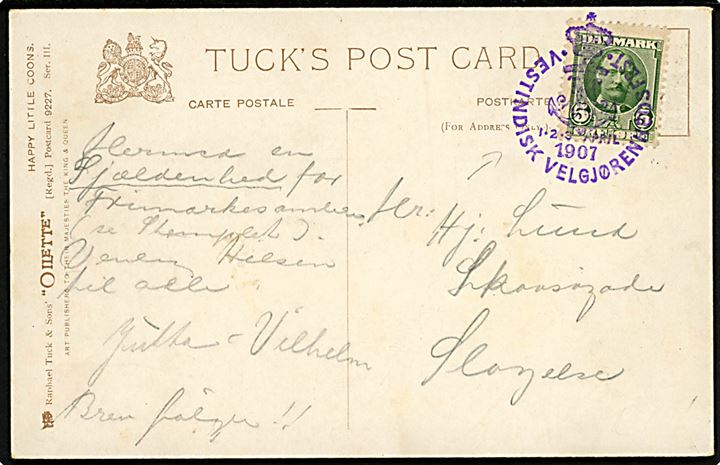 TUCK'S POST CARD
CARTE POSTALE
POSTKARTE
(FOR ADDRESS ONLY)
HAPPY LITTLE COONS.
Raphael Tuck & Sons' "OILETTE" [Regd.] Postcard 9227. Ser. III.
ART PUBLISHERS TO THEIR MAJESTIES THE KING & QUEEN
DANMARK
5 5
VESTINDISK VELGJØRENHEDS
1-2-3 APRIL
1907
Hermed en
Sjældenhed for
Frimærkesamlere
(se Stemplet).
Venlig Hilsen
til alle
Jutta - Vilhelm
Brev følger!!
Hr:
Hj: Lund
Skovsøgade
Slagelse